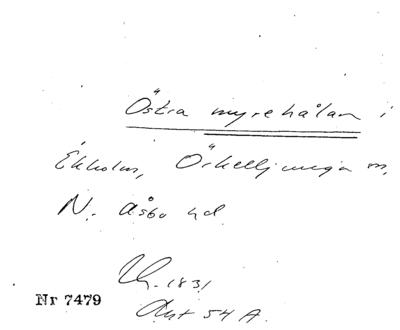 Östra myrehålan i
Ekholm, Örkelljunga sn,
N. Åsbo hd
1831
Nr 7479
Ant 54 A.